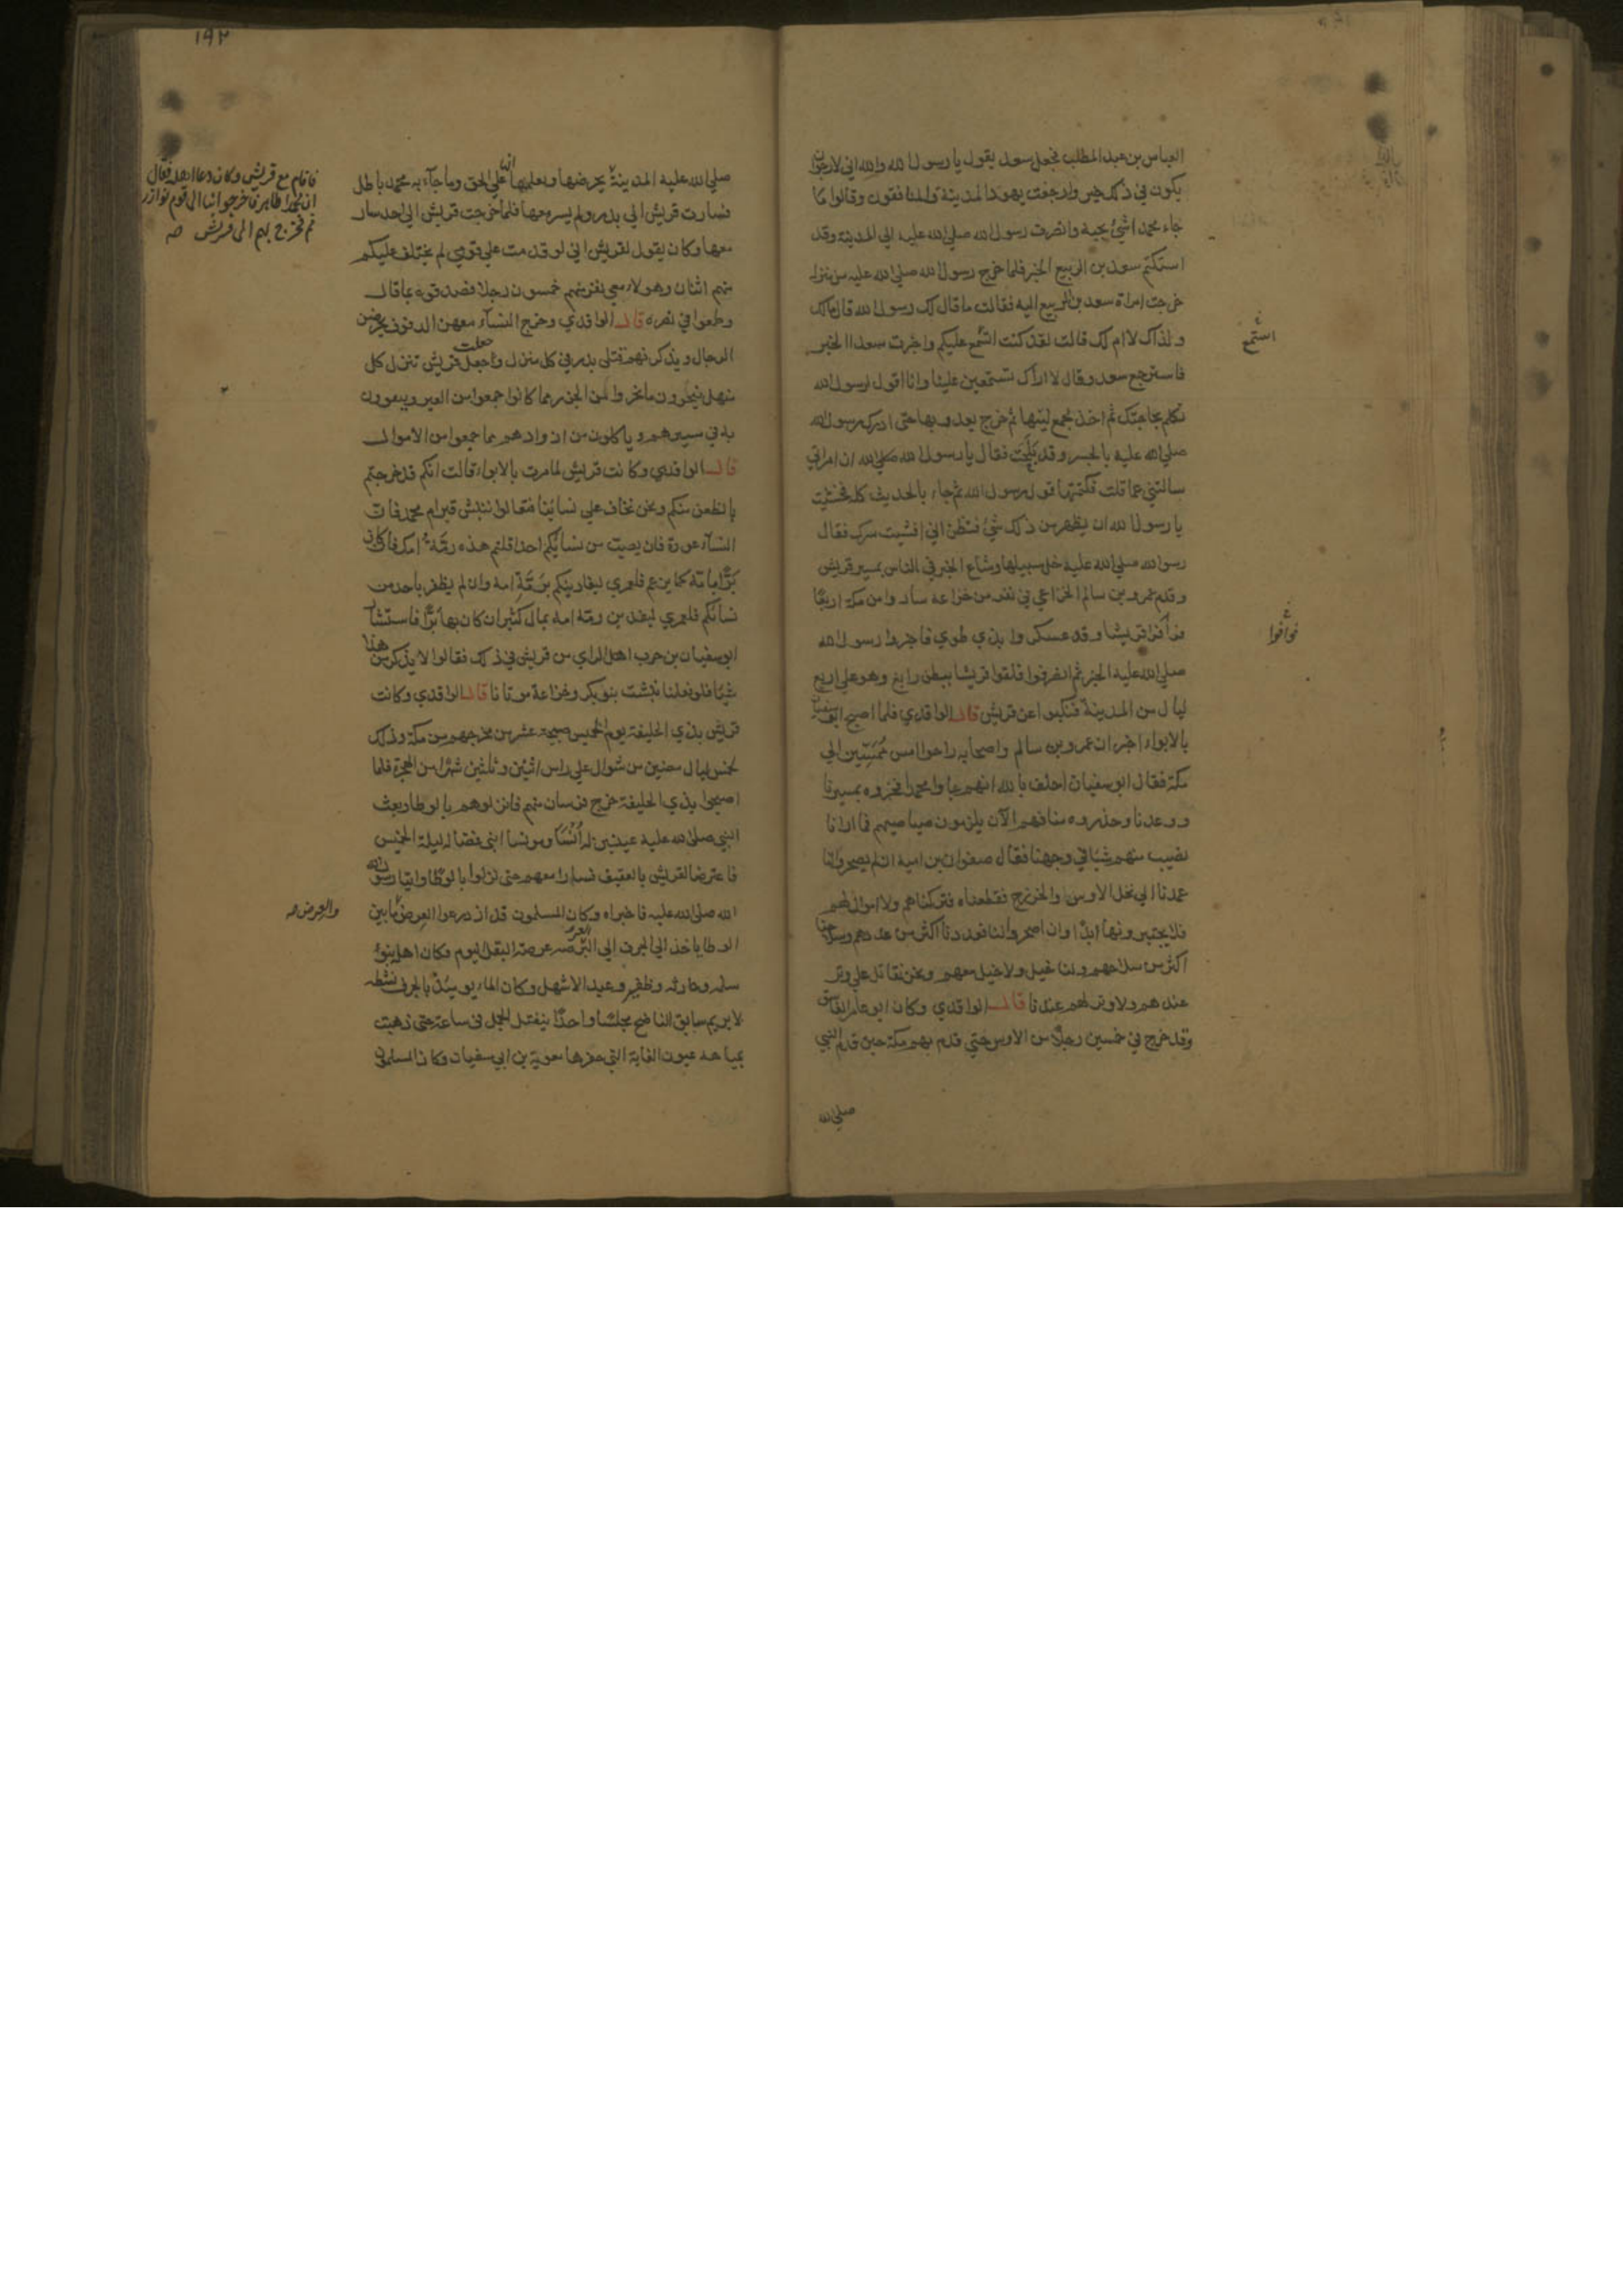 العباس بن عبد المطلب فجعل سعد يقول يا رسول الله والله اني لارجوان
يكون في ذلك خير وارجفت يهود المدينة والمنافقون وقالوا ما
جاء محمد اشئ يحبه وانصرف رسول الله صلي الله عليه الي المدينة وقد
استكتم سعد بن الربيع الخبر فلما خرج رسول الله صلي الله عليه من منزله
خرجت امراة سعد بن الربيع اليه فقالت ما قال لك رسول الله قال مالك
ولذاك لا ام لك قالت لقد كنت استمع عليكم واخبرت سعدا الخبر
فاسترجع سعد وقال لا اراك تستمعين علينا وانا اقول لرسول الله
تكلم بحاجتك ثم اخذ بجمع لبتها ثم خرج يعدو بها حتي ادرك رسول الله
صلي الله عليه بالجسر وقد بلحت فقال يا رسول الله صلي الله ان امراتي
سالتني عما قلت فكتمتها قول رسول الله ثم جاء بالحديث كله فخشيت
يا رسول الله ان يظهر من ذلك شئ فتظن اني افشيت سرك فقال
رسول الله صلي الله عليه خل سبيلها وشاع الخبر في الناس بمسير قريش
وقدم عمرو بن سالم الخزاعي في نفر من خزاعة ساروا من مكة اربعا
فوافوا قريشا وقد عسكروا بذي طوي فاخبروا رسول الله
صلي الله عليه الخبر ثم انصرفوا فلقوا قريشا ببطن رابغ وهو علي اربع
ليال من المدينة فنكبوا عن قريش قال الواقدي فلما اصبح ابو سفيان
بالابواء اخبر ان عمرو بن سالم واصحابه راحوا امس ممسين الي
مكة فقال ابو سفيان احلف بالله انهم جاوا محمدا فخبروه بمسيرنا
وعددنا وحذروه منا فهم الآن يلزمون صياصيهم فما ارانا
نصيب منهم شيئا في وجهنا فقال صفوان بن امية ان لم يصحروا لنا
عمدنا الي نخل الاوس والخزرج فقطعناه فتركناهم ولا اموال لهم
فلا يجتبرونها ابدا وان اصحروا لنا فعددنا اكثر من عددهم وسلاحنا
اكثر من سلاحهم ولنا خيل ولا خيل معهم ونحن نقاتل علي وتر
عندهم ولا وتر لهم عندنا قال الواقدي وكان ابو عامر الفاسق
وقد خرج في خمسين رجلا من الاوس حتي قدم بهم مكة حين قدم النبي
صلي الله
استمع
فوافوا
١٩٢
صلي الله عليه المدينة يحرضها ويعلمها انها علي الحق وما جاء به محمد باطل
فسارت قريش الي بدر ولم يسر معها فلما خرجت قريش الي احد سار
معها وكان يقول لقريش اني لو قدمت علي قومي لم يختلف عليكم
منهم اثنان وهولاء معي نفر منهم خمسون رجلا فصدقوه بما قال
وطمعوا في نصره قال الواقدي وخرج النساء معهن الدفوف يحرضن
الرجال ويذكرنهم قتلي بدر في كل منزل وجعلت قريش تنزل كل
منهل ينحرون ما نحروا من الجزر مما كانوا جمعوا من العير ويتقوون
به في سيرهم وياكلون من ازوادهم مما جمعوا من الاموال
قال الواقدي وكانت قريش لما مرت بالابواء قالت انكم قد خرجتم
بالظعن معكم ونحن نخاف علي نسائنا فتعالوا ننبش قبر ام محمد فان
النساء عورة فان يصب من نسائكم احدا قلتم هذه رمة امك فان كان
برا بامه كما يزعم فلعمري ليفادينكم برمة امه وان لم يظفر باحد من
نسائكم فلعمري ليفدين رمة امه بمال كثير ان كان بها برا فاستشار
ابو سفيان بن حرب اهل الراي من قريش في ذلك فقالوا لا يذكر من هذا
شيئا فلو فعلنا نبشت بنو بكر وخزاعة موتانا قال الواقدي وكانت
قريش بذي الحليفة يوم الخميس صبيحة عشر من مخرجهم من مكة وذلك
لخمس ليال مضين من شوال علي راس اثنين وثلثين شهرا من الهجرة فلما
اصبحوا بذي الحليفة خرج فرسان منهم فانزلوهم بالوطا وبعث
النبي صلي الله عليه عينين له انسا ومونسا ابني فضالة ليلة الخميس
فاعترضا لقريش بالعقيق فسارا معهم حتي نزلوا بالوطا واتيا رسول الله
الله صلي الله عليه فاخبراه وكان المسلمون قد ازدرعوا العرض ما بين
الوطا باحد الي الجرف الي العرصة عرصة البقل اليوم وكان اهله بنو
سلمه وحارثه وظفر وعبد الاشهل وكان الماء يومئذ بالجرف نشطه
لا يريم سابق الناضح مجلسا واحدا ينفتل الجمل في ساعته حتي ذهبت
بمياهه عيون الغابة التي حفرها معوية بن ابي سفيان وكان المسلمون
فاقام مع قريش وكان دعا اهله فقال
ان محمدا ظاهر فاخرجوا بنا الي قوم نوازرهم
ثم فخرج بهم الي قريش صه
والعرض صه